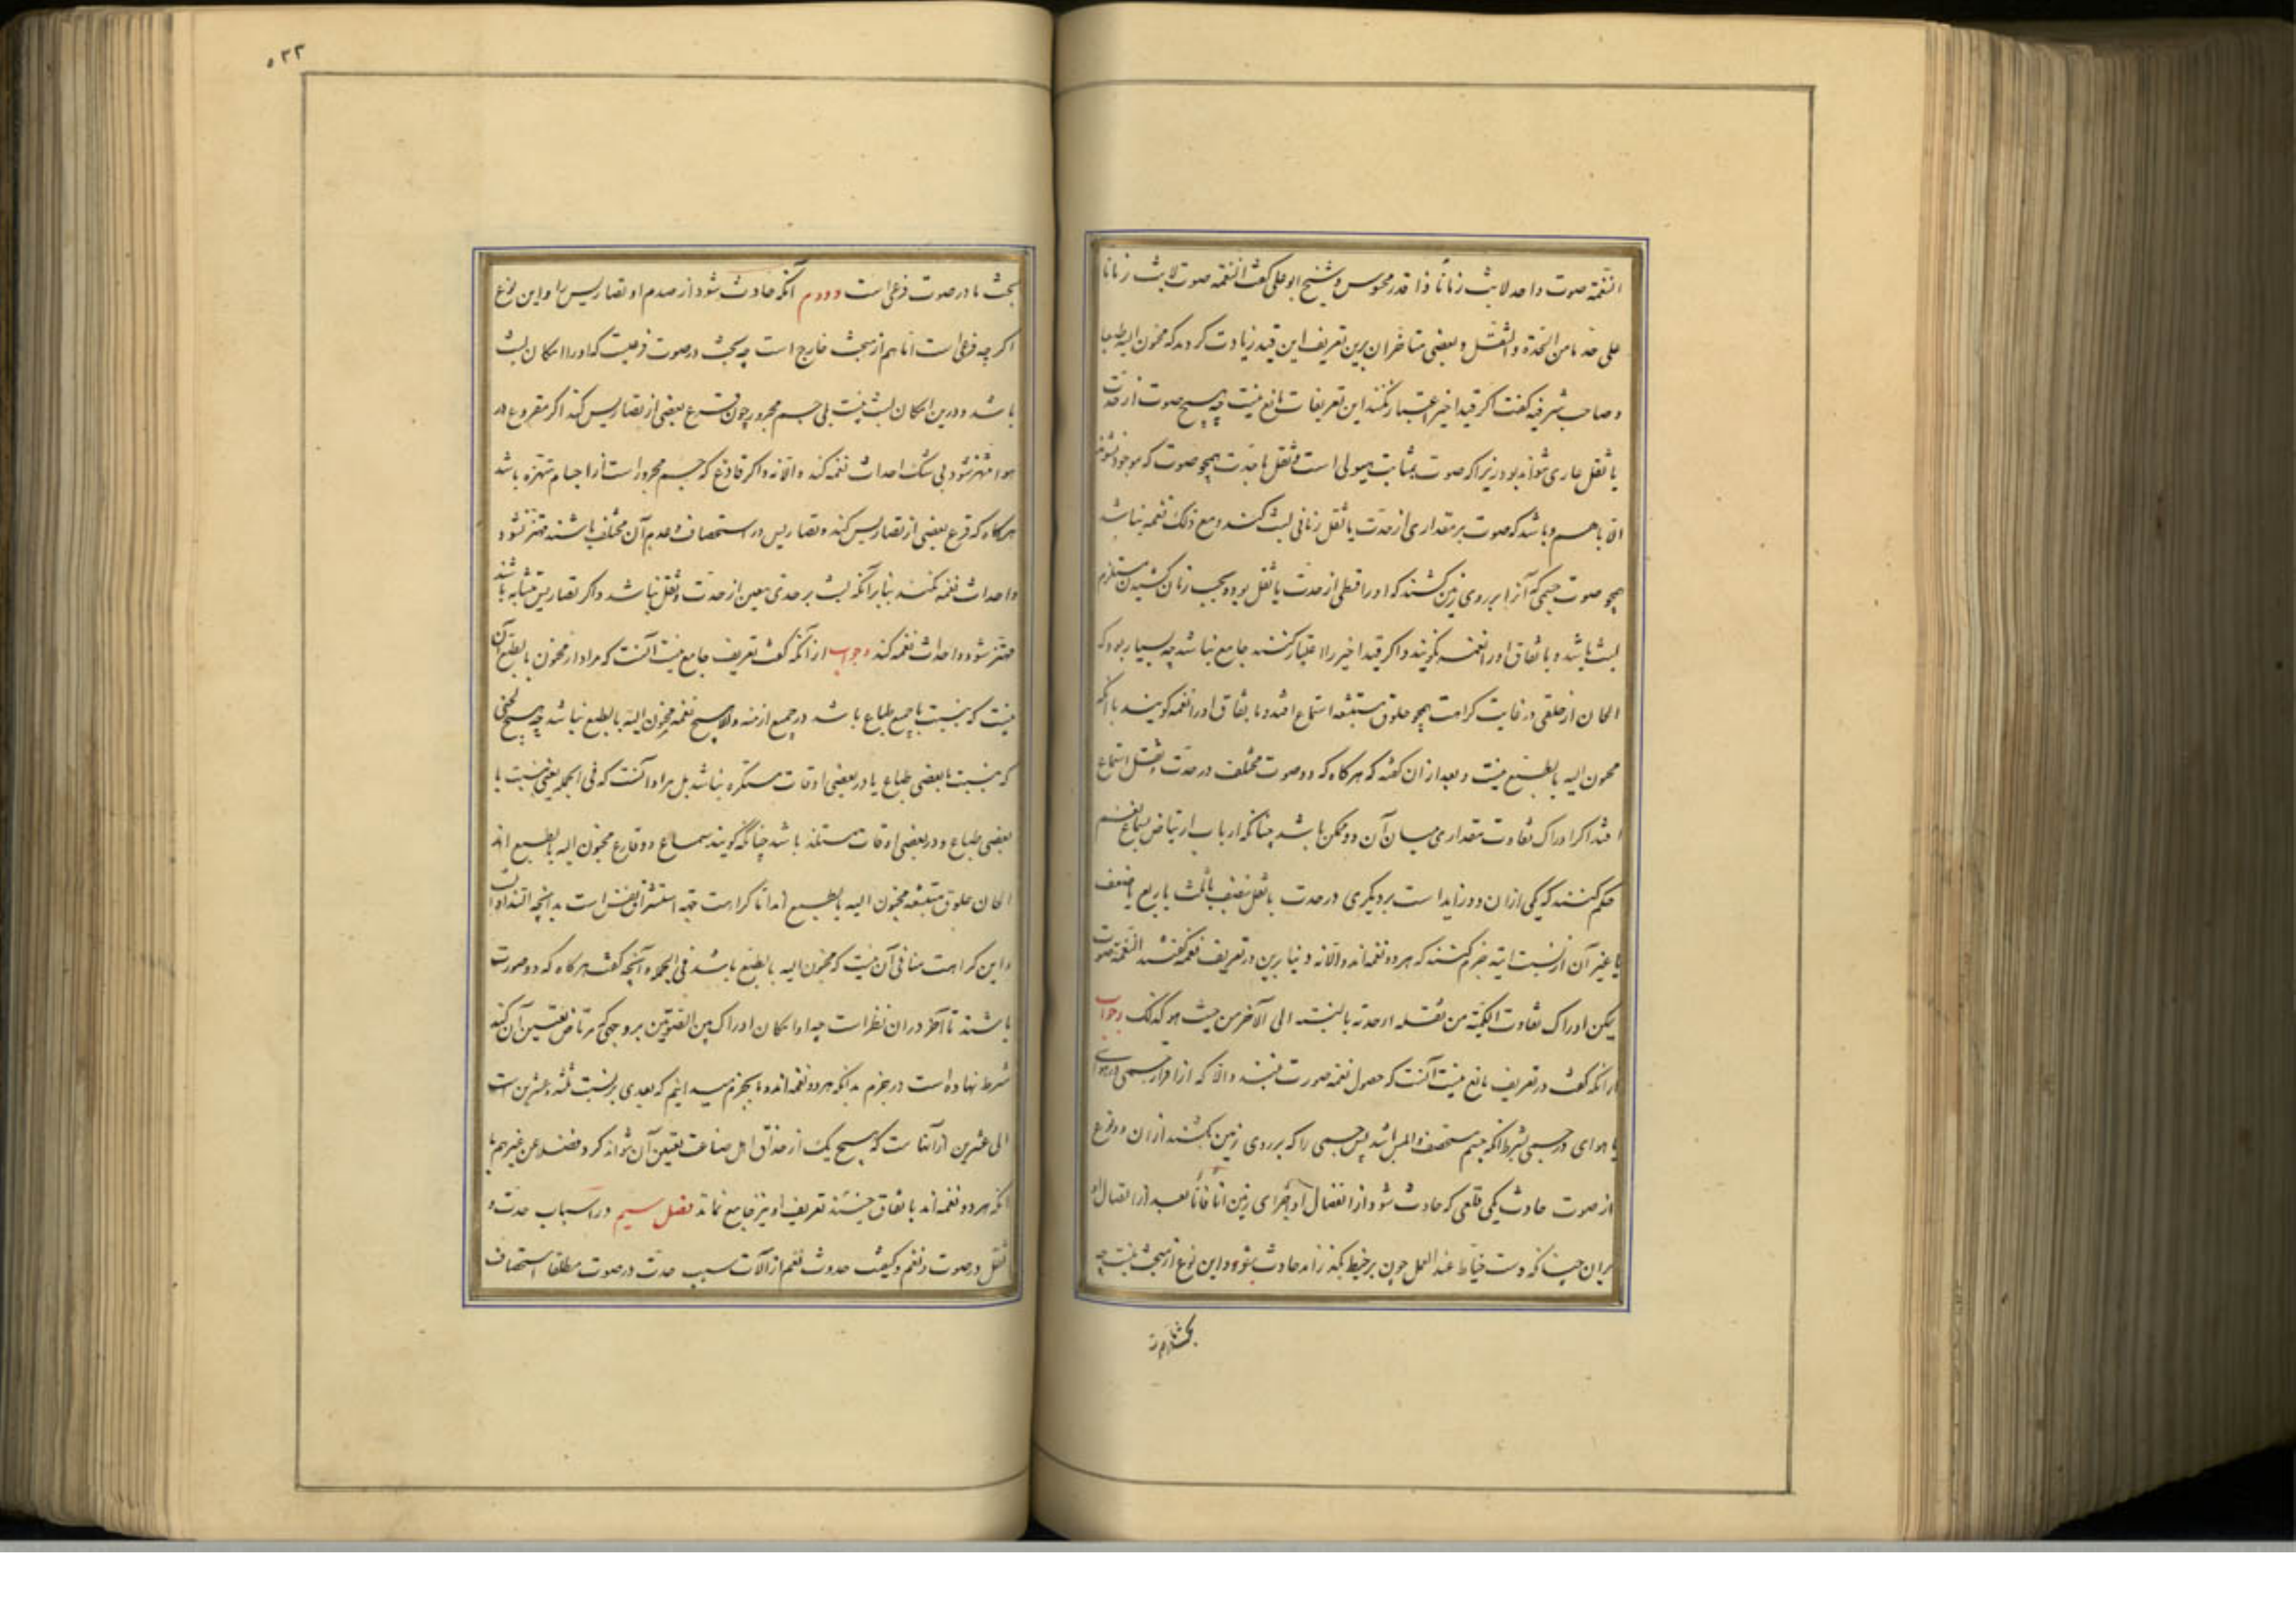 النغمة صوت واحد لابث زمانا ذا قدر محسوس و شیخ ابو علی گفت النغمه صوت لابث زمانا
علی حد ما من الحدة و الثقل و بعضی متاخران برین تعریف این قید زیادت کردند که محنون الیه طبعا
و صاحب شرفیه گفت اگر قید اخیر اعتبار نکنند این تعریفات مانع نیست چه هیچ صوت از حدت
یا ثقل عاری نتواند بود زیرا که صوت بمثابت هیولی است و ثقل یا حدت همچو صورت که موجود نشوند
الا باهم و باشد که صوت بر مقداری از حدت یا ثقل زمانی لبث کند و مع ذلک نغمه نباشد
همچو صوت جسمی که آنرا بر روی زمین کشند که او را قسطی از حدت یا ثقل بود و بحسب زمان کشیدن مستلزم
لبث باشد و باتفاق او را نغمه نگویند و اگر قید اخیر را اعتبار کنند جامع نباشد چه بسیار بود که
الحان از حلقی در غایت کراهت همچو حلوق مستبشعه استماع افتد و باتفاق او را نغمه گویند با آنکه
محنون الیه بالطبع نیست و بعد از آن گفته که هرگاه که دو صوت مختلف در حدت و ثقل استماع
افتد اگر ادراک تفاوت مقداری میان آن دو ممکن باشد چنانکه ارباب ارتیاض بسماع نغم
حکم کنند که یکی از آن دو زاید است بر دیگری در حدت یا ثقل بنصف یا ثلث یا ربع یا ضعف
یا غیر آن از نسب البته جزم کنند که هر دو نغمه اند و الا نه و بنا برین در تعریف نغمه گفته النغمة صوت
یمکن ادراک تفاوت الکمیة من ثقله او حدته بالنسبه الی الآخر من حیث هو کذلک و جواب
از آنکه گفت در تعریف مانع نیست آنست که حصول نغمه صورت نبندد الا که از اقراع جسمی در هوای
یا هوای در جسمی بشرط آنکه جسم مستحصف و املس باشد پس جسمی را که بر روی زمین بکشند از آن دو نوع
از صوت حادث یکی قلعی که حادث شود از انفصال او اجزای زمین آنا فآنا بعد از اتصال او
بران چنانکه دست خیاط عند العمل چون بر خیط بگذراند حادث شود و این نوع از مبحث نیست چه
بحث ما در صوت
۵۳۳
بحث ما در صوت قرعی است و دوم آنکه حادث شود از صدم او تضاریس را و این نوع
اگر چه قرعی است اما هم از مبحث خارج است چه بحث در صوت قرعیست که او را امکان لبث
باشد و درین امکان لبث نیست بلی جسم مجرور چون قرع بعضی از تضاریس کند اگر مقروع در
هوا مهتز شود بی شک احداث نغمه کند و الا نه و اگر قارع که جسم مجرور است از اجسام مهتزه باشد
هرگاه که قرع بعضی از تضاریس کند و تضاریس در استحصاف و عدم آن مختلف باشند مهتز نشود
و احداث نغمه نکند بنابر آنکه لبث بر حدی معین از حدت و ثقل نباشد و اگر تضاریس متشابه باشند
مهتز شود و احداث نغمه کند و جواب از آنکه گفت تعریف جامع نیست آنست که مراد از محنون بالطبع آن
نیست که بنسبت با جمیع طباع باشد در جمیع ازمنه و الا هیچ نغمه محنون الیه بالطبع نباشد چه هیچ لحنی
که بنسبت با بعضی طباع یا در بعضی اوقات مستکره نباشد بل مراد آنست که فی الجمله یعنی بنسبت با
بعضی طباع و در بعضی اوقات مستلذ باشد چنانکه گویند سماع و وقاع محنون الیه بالطبع اند
الحان حلوق مستبشعه محنون الیه بالطبع اند اما کراهت جهة استشراق نفس است بدانچه التذاذ
و این کراهت منافی آن نیست که محنون الیه بالطبع باشد فی الجمله و آنچه گفت هرگاه که دو صوت
باشند تا آخر در آن نظر است چه او امکان ادراک بین الصوتین بر وجهی که مرتاض تعیین آن کند
شرط نهاده است در جزم بدانکه هر دو نغمه اند و ما بجزم میدانیم که بعدی بر نسبت ثلثه و عشرین است
الی عشرین از آنهاست که هیچ یک از حذاق اهل صناعت تعیین آن نتواند کرد فضلا عن غیرهم با
آنکه هر دو نغمه اند باتفاق جیند تعریف او نیز جامع نماند فصل سیم در اسباب حدت و
ثقل در صوت و نغم و کیفیت حدوث نغم از آلات سبب حدت در صوت مطلقا استحصاف